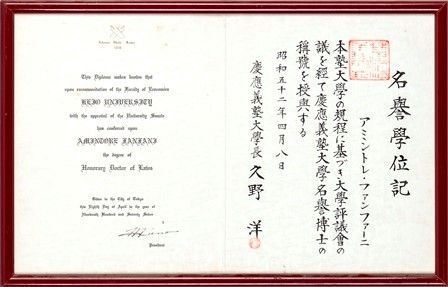 This Diploma makes known that
upon recommendation of the Faculty of Economics
KEIO UNIVERSITY
with the approval of the University Senate
has conferred upon
AMINTORE FANFANI
the degree of
Honorary Doctor of Laws
Given in the City of Tokyo
this Eighth Day of April in the year of
Nineteenth Hundred and Seventy Seven
President
名譽學位記
アミントレ・ファンファーニ
本塾大學の規程に基づき大學評議會の
議を經て慶應義塾大學名譽博士の
稱號を授與する
昭和五十二年四月八日
慶應義塾大學長 久野 洋